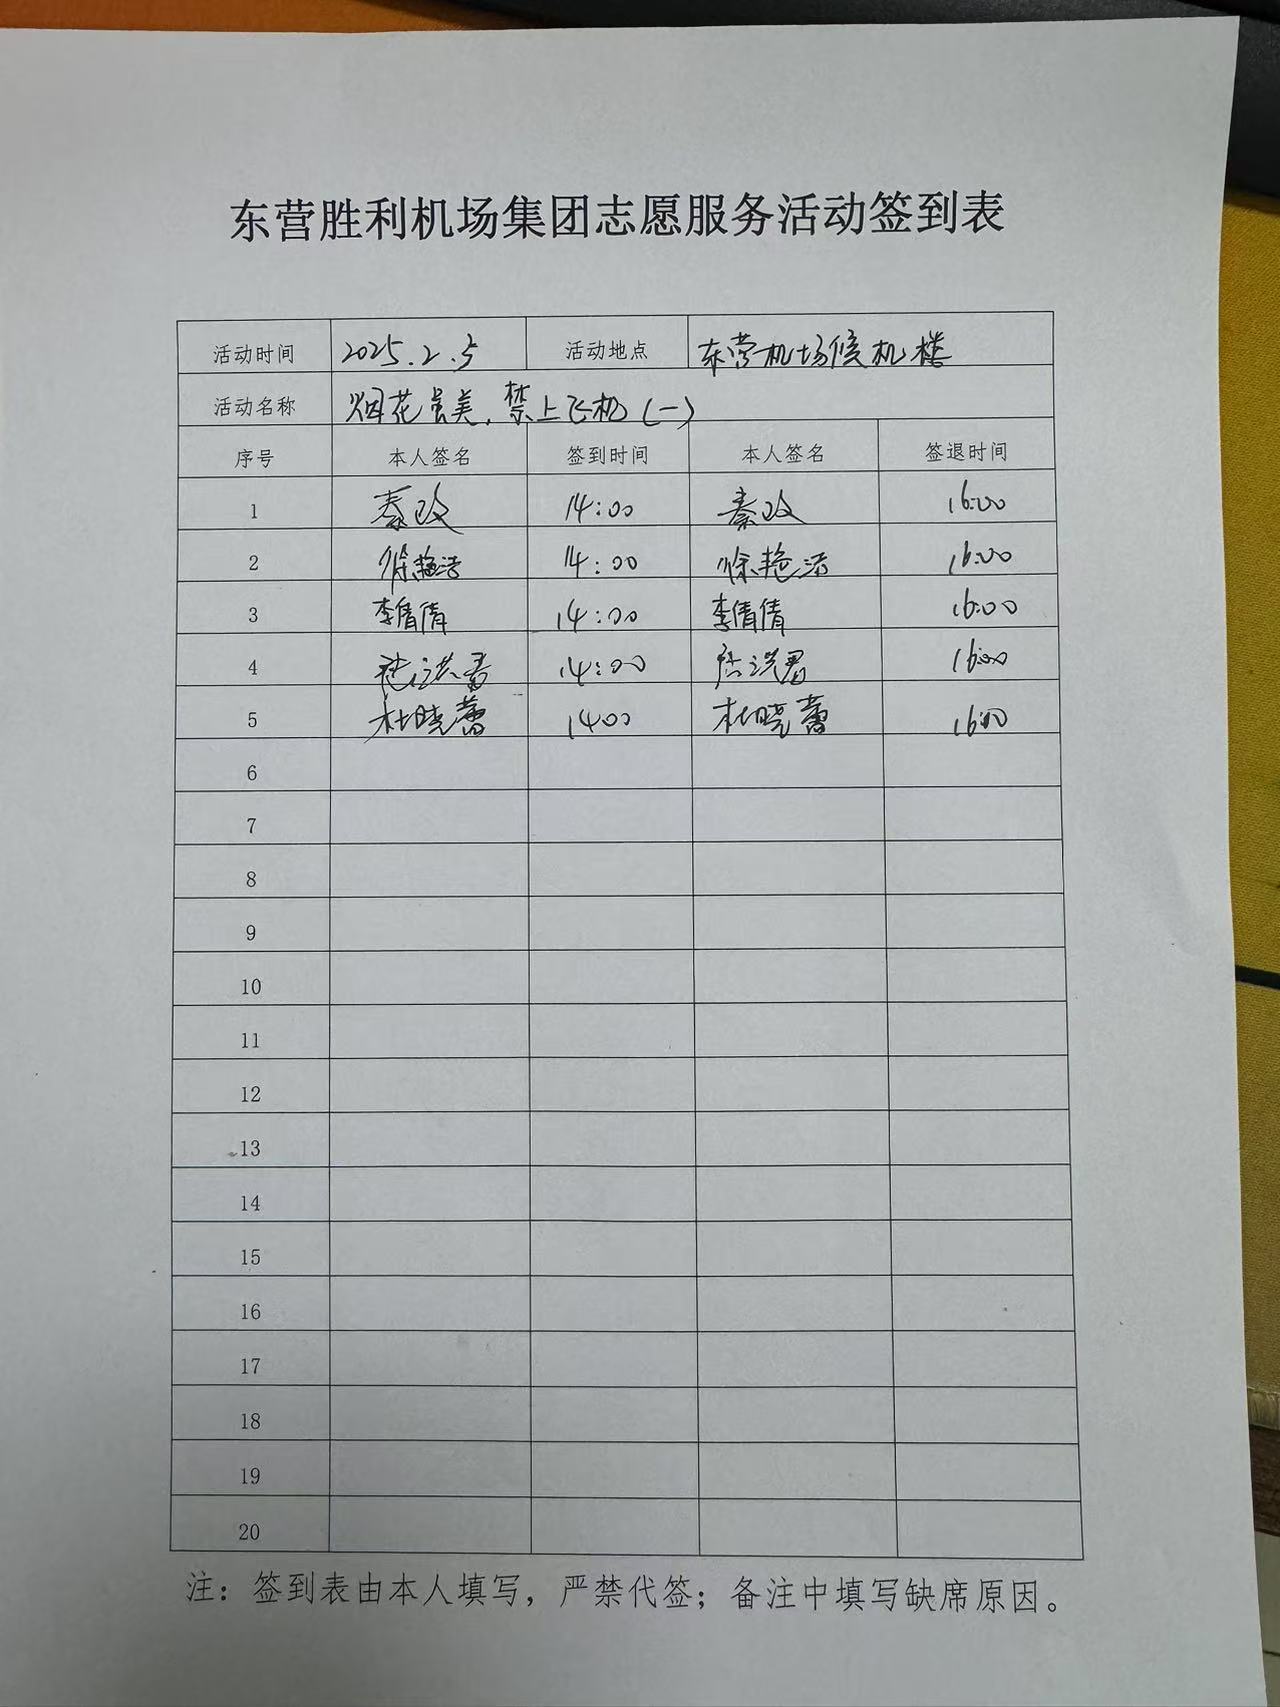 东营胜利机场集团志愿服务活动签到表
活动时间 2025.2.5 活动地点 东营机场候机楼
活动名称 烟花虽美,禁上飞机(一)
序号 本人签名 签到时间 本人签名 签退时间
1 秦政 14:00 秦政 16:00
2 徐艳洁 14:00 徐艳洁 16:00
3 李倩倩 14:00 李倩倩 16:00
4 14:00 16:00
5 杜晓蕾 1400 杜晓蕾 16:00
6
7
8
9
10
11
12
13
14
15
16
17
18
19
20
注：签到表由本人填写，严禁代签；备注中填写缺席原因。